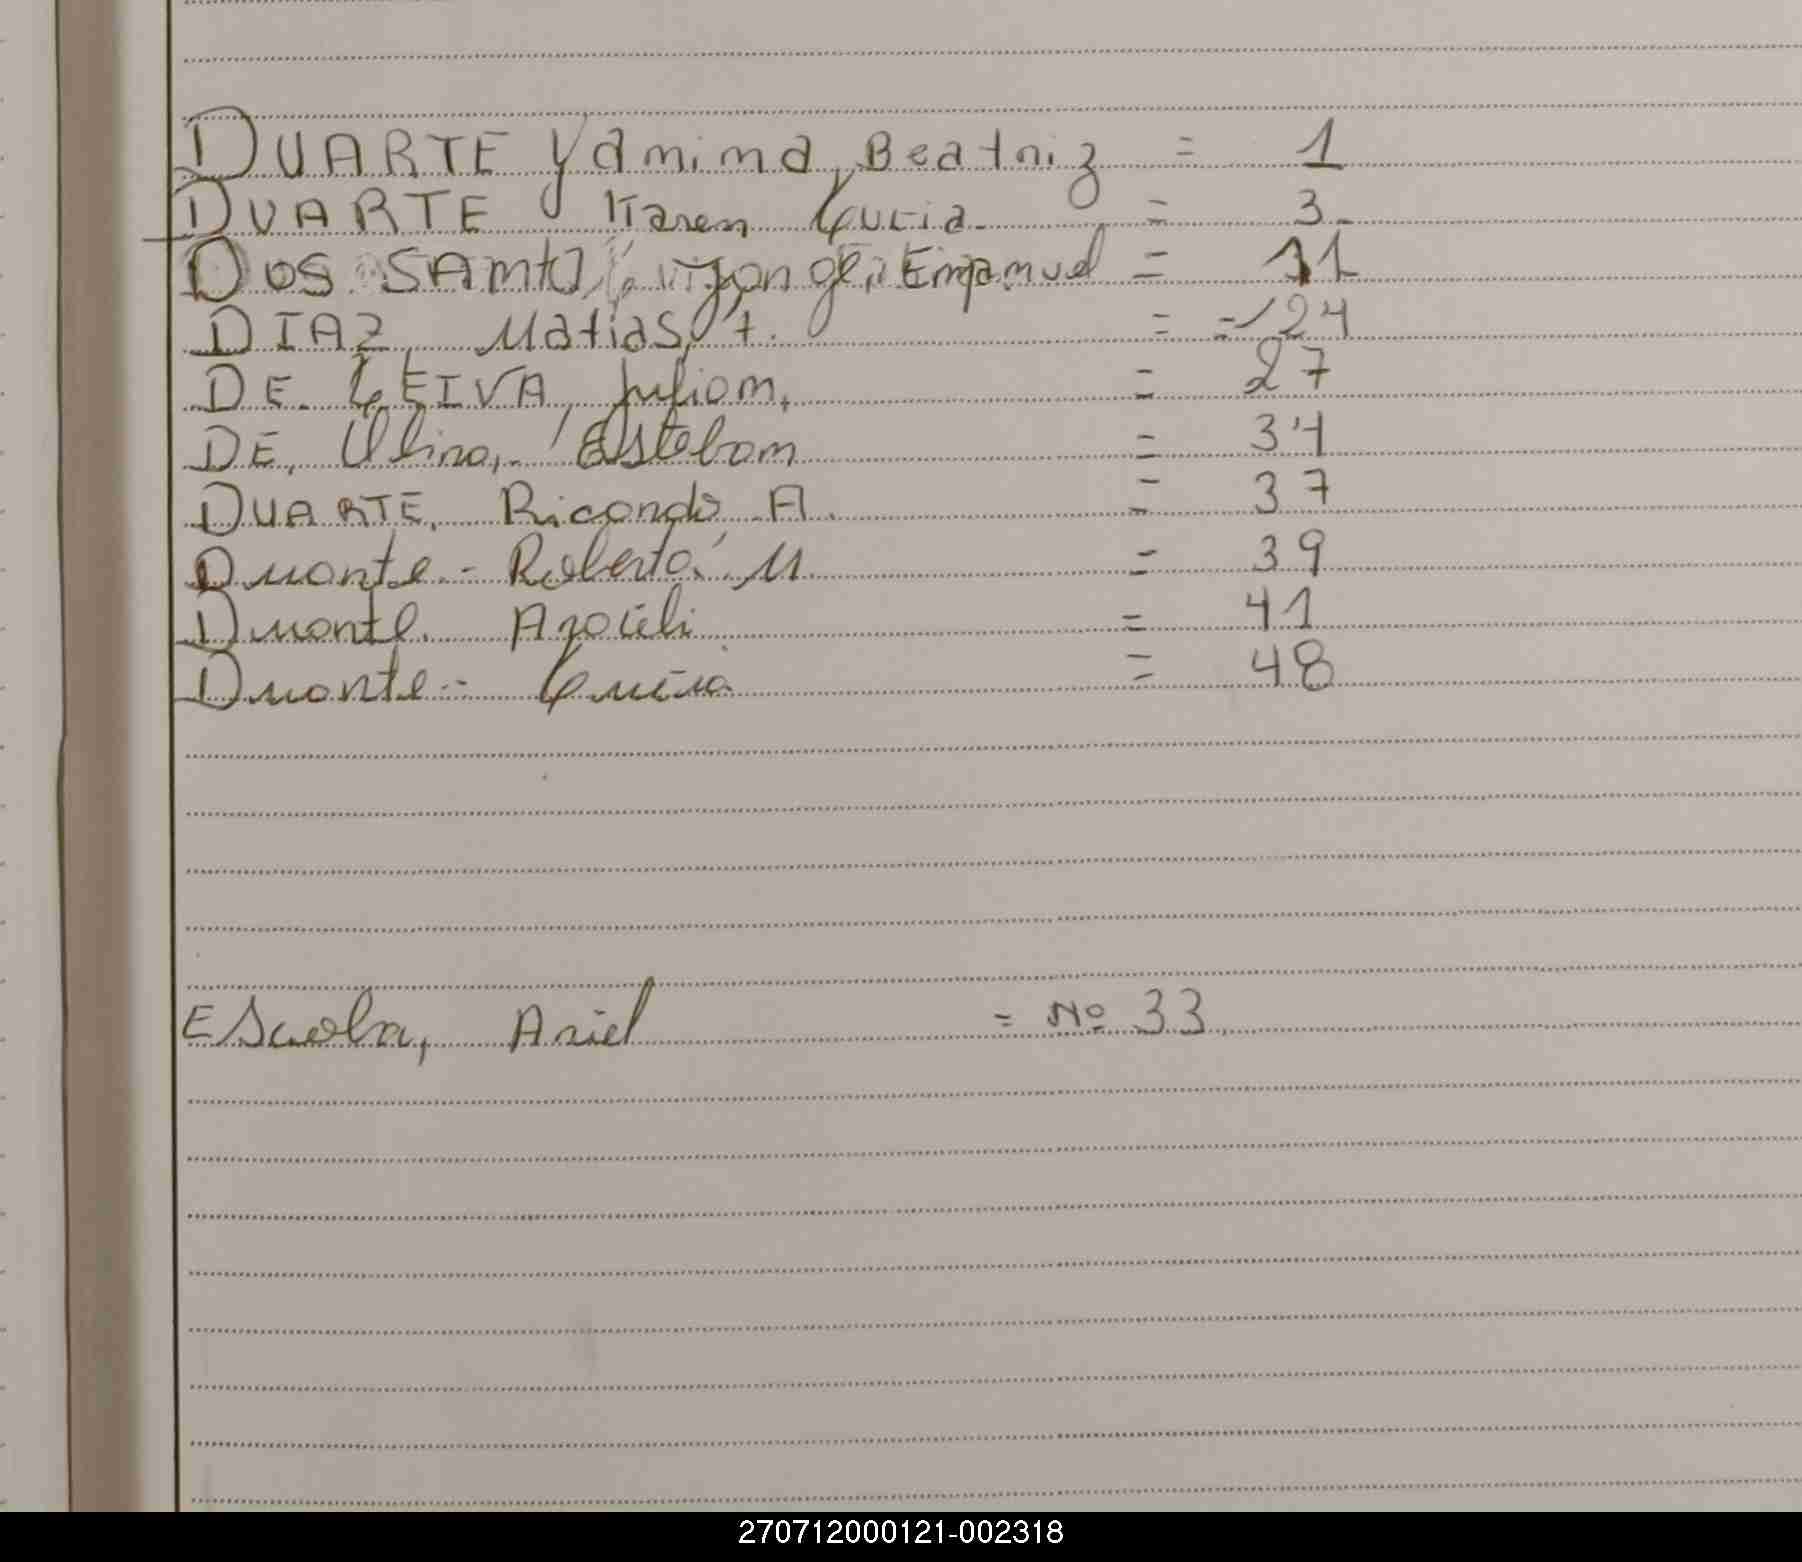 DUARTE Yamima, Beatriz = 1
DUARTE Karen Lucia = 3
DOS SANTO Emanuel = 11
DIAZ Matias, = 24
DE LEIVA, Julian, = 27
DE, Esteban = 34
DUARTE, Ricardo A. = 37
Duarte - Roberto M. = 39
Duarte. = 41
Duarte - Lucia = 48
Escola, Ariel = Nº 33
270712000121-002318